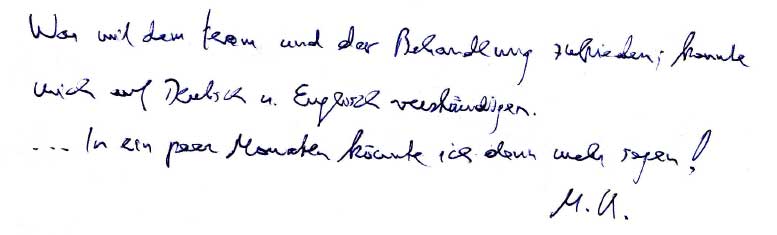 War mit dem Team und der Behandlung zufrieden; konnte
mich auf Deutsch u. Englisch verständigen.
... In ein paar Monaten könnte ich dann mehr sagen!
M. K.